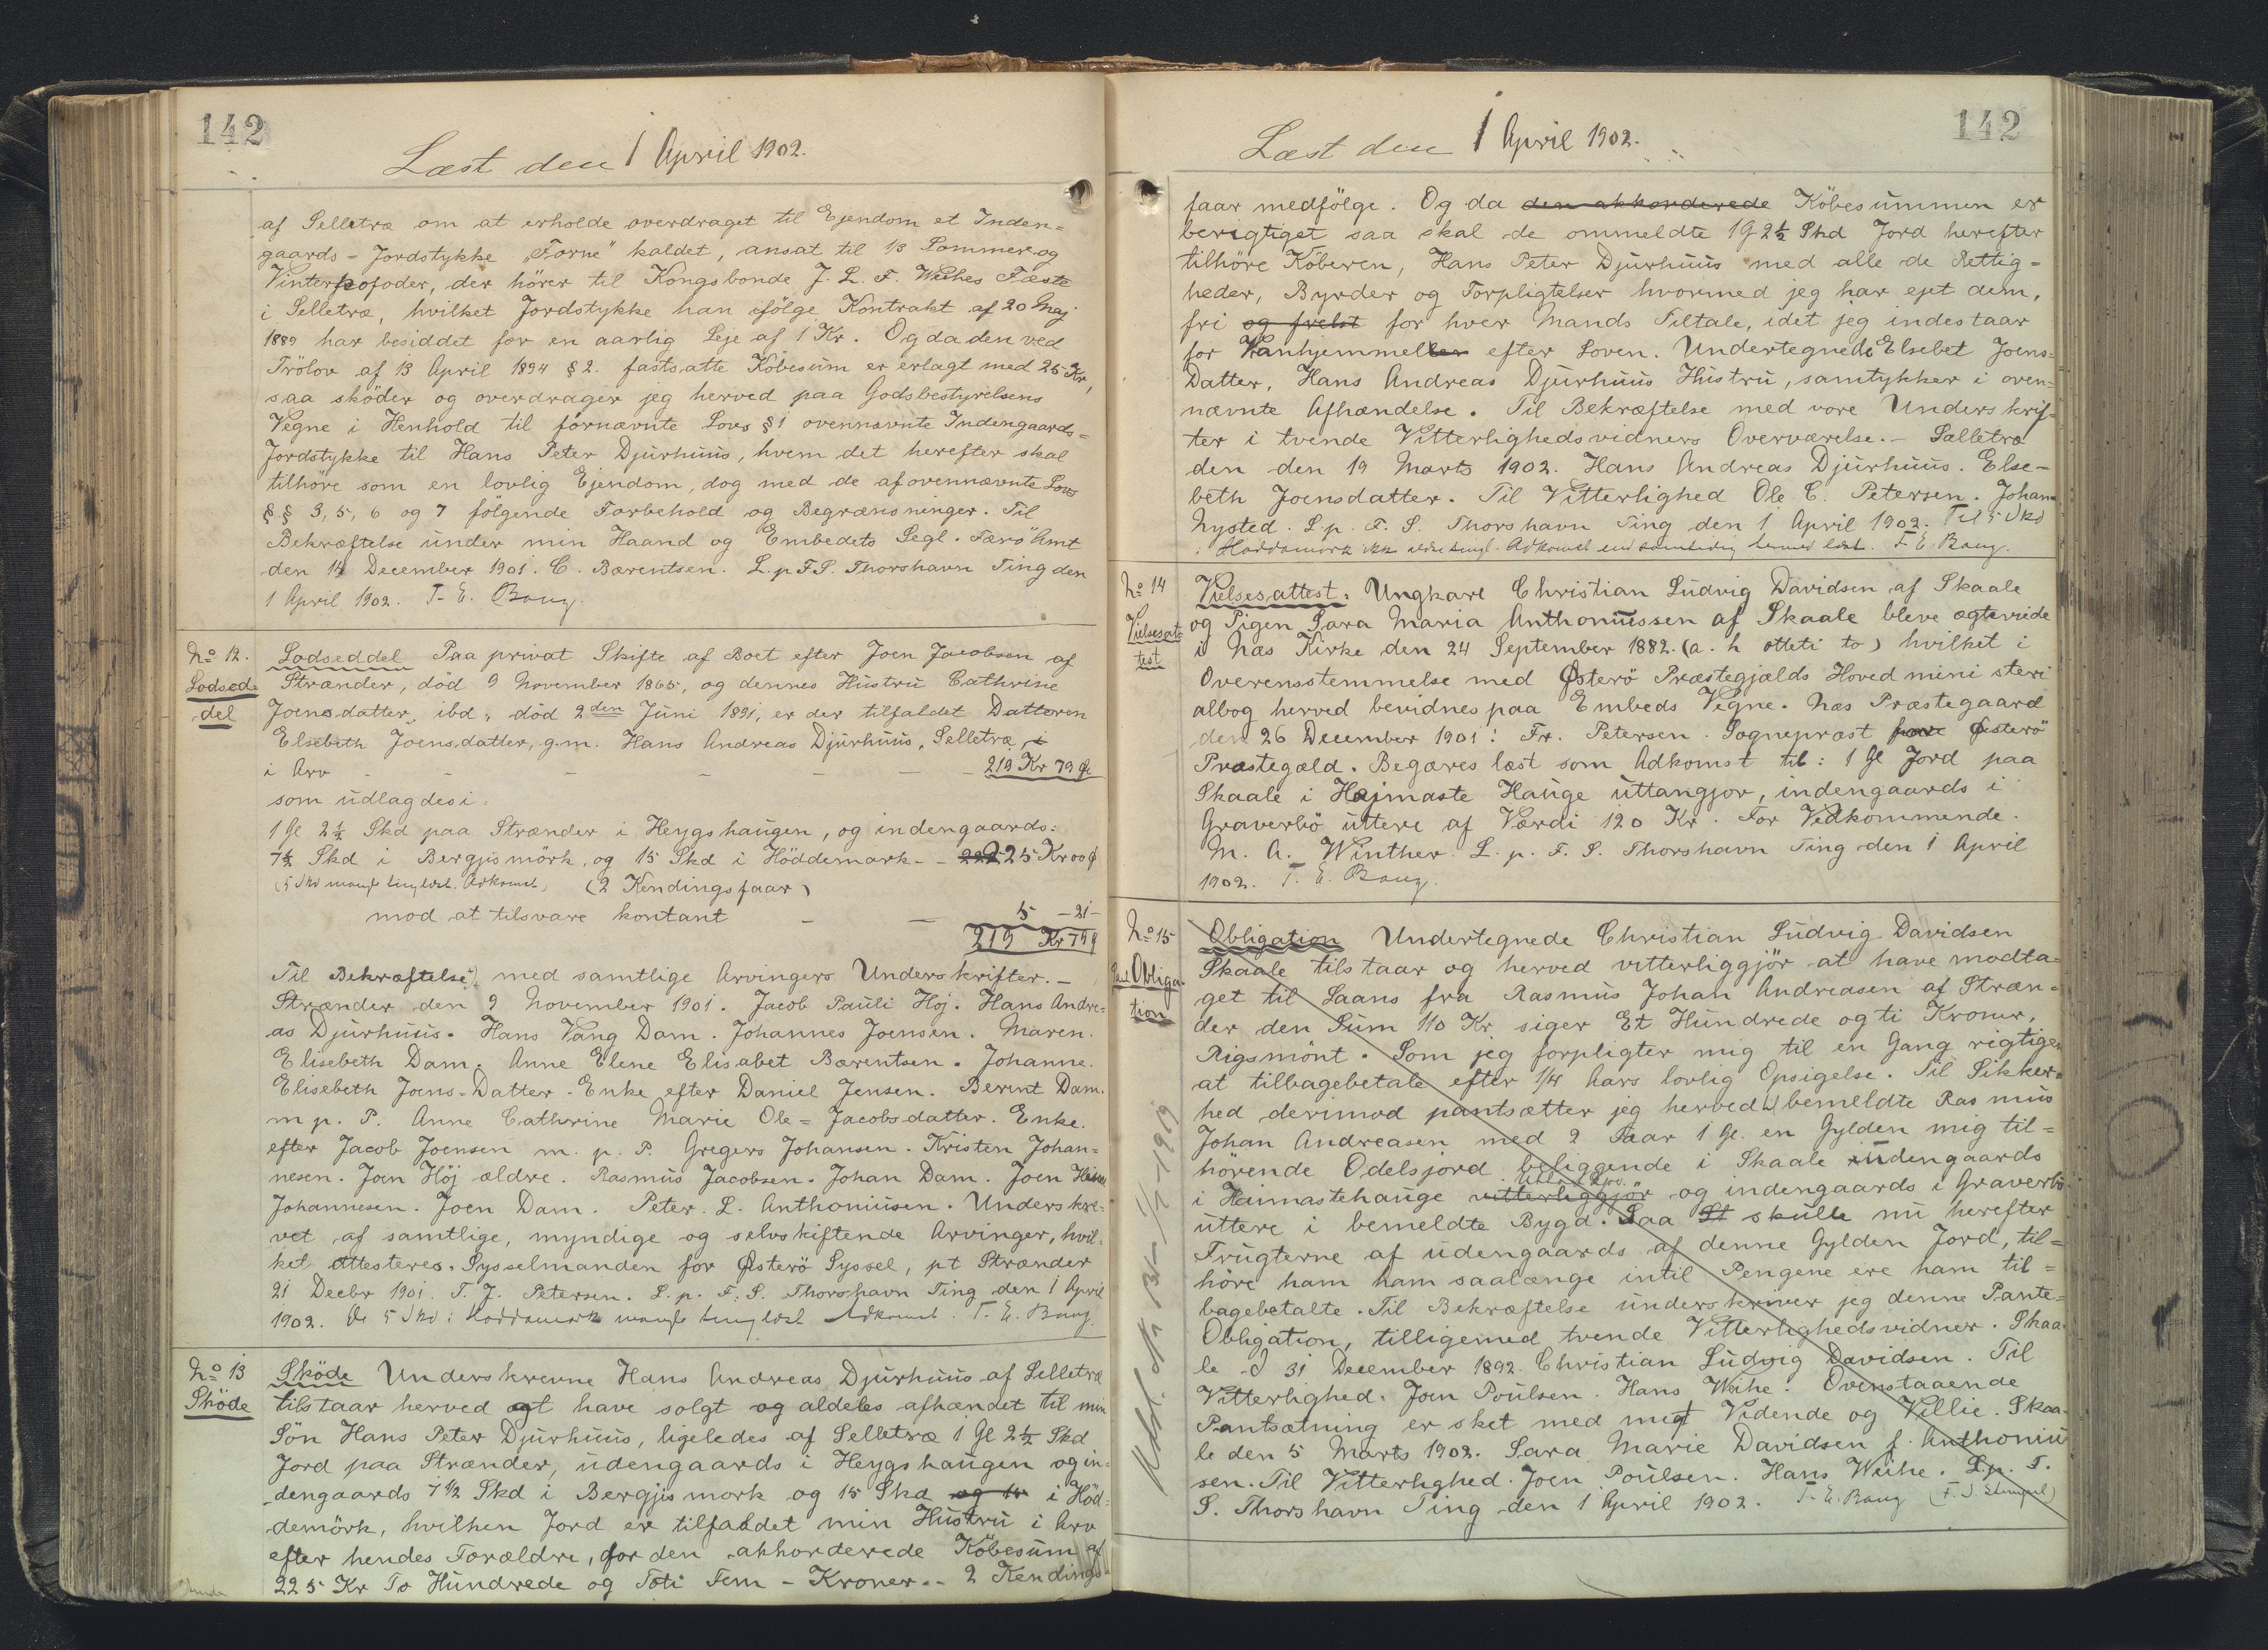 142
Læst den 1 April 1902.
af Selletræ om at erholde overdraget til Ejendom et Inden=
gaards=Jordstykke „Forne" kaldet, ansat til 1/3 Sommer og
Vinterkofoder, der hörer til Kongsbonde J. L. F. Weihes Fæste
i Selletræ, hvilket Jordstykke han ifölge Kontrakt af 20 Maj
1889 har besiddet for en aarlig Leje af 1 Kr. Og da den ved
Frölov af 13 April 1894 § 2. fastsatte Köbesum er erlagt med 25 Kr,
saa sköder og overdrager jeg herved paa Godsbestyrelsens
Vegne i Henhold til fornævnte Lovs § 1 ovennævnte Indengaards=
Jordstykke til Hans Peter Djurhuus, hvem det herefter skal
tilhöre som en lovlig Ejendom, dog med de af ovennævnte Lovs
§ § 3, 5, 6 og 7 fölgende Forbehold og Begrænsninger. Til
Bekræftelse under min Haand og Embedets Segl. Færö Amt
den 14 December 1901. C. Bærentsen. L. p F. S. Thorshavn Ting den
1 April 1902. T. E. Bang.
No 12.
Lodsed=
del
Lodseddel Paa privat Skifte af Boet efter Joen Jacobsen af
Strænder, död 9 November 1865, og dennes Hustru Cathrine
Joensdatter, ibd., död 2den Juni 1891, er der tilfaldet Datteren
Elsebeth Joensdatter, g.m. Hans Andreas Djurhuus, Selletræ, i
i Arv - - - - - - 219 Kr 79 Ø
som udlagdes i:
1 Gl 2½ Skd paa Strænder i Heygshaugen, og indengaards:
7½ Skd i Bergjismörk, og 15 Skd i Höddemark - - 225 Kr 00 Ø
(5 Skd mangler tinglæst Adkomst) (2 Kendingsfaar)
mod at tilsvare kontant - - 5 - 21 -
219 Kr 79 Ø
Til Bekræftelse med samtlige Arvingers Underskrifter. -
Strænder den 9 November 1901. Jacob Pauli Höj. Hans Andre=
as Djurhuus. Hans Vang Dam. Johannes Joensen. Maren.
Elisebeth Dam. Anne Elene Elisabet Bærentsen. Johanne.
Elisebeth Joens-Datter. Enke efter Daniel Jensen. Berint Dam.
m p. P. Anne Cathrine Marie Ole=Jacobsdatter. Enke.
efter Jacob Joensen m. p. P. Gregers Johansen. Kristen Johan=
nesen. Joen Höj ældre. Rasmus Jacobsen. Johan Dam. Joen
Johannesen. Joen Dam. Peter. L. Anthoniusen. Underskre=
vet af samtlige, myndige og selvskiftende Arvinger, hvil=
ket attesteres. Sysselmanden for Østerö Syssel, pt Strænder
21 Decbr 1901. T. J. Petersen. L. p. F. S. Thorshavn Ting den 1 April
1902. De 5 Skd i Höddamörk mangler tinglæst Adkomst. T. E. Bang.
No 13
Sköde
Sköde Underskrevne Hans Andreas Djurhuus af Selletræ
tilstaar herved at have solgt og aldeles afhændet til min
Sön Hans Peter Djurhuus, ligeledes af Selletræ 1 Gl 2½ Skd
Jord paa Strænder, udengaards i Heygshaugen og in=
dengaards 7½ Skd i Bergjismork og 15 Skd og 15 i Höd=
demörk, hvilken Jord er tilfaldet min Hustru i Arv
efter hendes Forældre, for den akkorderede Köbesum af
225 Kr To Hundrede og Toti Fem - Kroner. - 2 Kendings=
142
Læst den 1 April 1902.
faar medfölge. Og da den akkorderede Köbesummen er
berigtiget saa skal de ommeldte 1 G 2½ Skd Jord herefter
tilhöre Köberen, Hans Peter Djurhuus med alle de Rettig=
heder, Byrder og Forpligtelser hvormed jeg har ejet dem,
fri og frelst for hver Mands Tiltale, idet jeg indestaar
for Vanhjemmel efter Loven. Undertegnede Elsebet Joens=
Datter, Hans Andreas Djurhuus Hustru, samtykker i oven=
nævnte Afhændelse. Til Bekræftelse med vore Underskrif=
ter i tvende Vitterlighedsvidners Overværelse. - Salletræ
den den 19 Marts 1902. Hans Andreas Djurhuus. Else=
beth Joensdatter. Til Vitterlighed Ole C. Petersen. Johan
Nysted. L. p. F. S. Thorshavn Ting den 1 April 1902. Til 5 Skd
i Höddamörk ikke tingl. Adkomst end samtidig hermed læst. T. E. Bang.
No 14
Vielsesat=
test
Vielsesattest. Ungkarl Christian Ludvig Davidsen af Skaale
og Pigen Sara Maria Anthoniussen af Skaale bleve ægteviede
i Næs Kirke den 24 September 1882. (a. h otteti to) hvilket i
Overensstemmelse med Østerö Præstegjælds Hovedministeri
albog herved bevidnes paa Embeds Vegne. Næs Præstegaard
den 26 December 1901: Fr. Petersen. Sognepræst for Østerö
Præstegæld. Begæres læst som Adkomst til: 1 Gl Jord paa
Skaale i Hæjmaste Hauge uttangjor, indengaards i
Graverbö uttere af Værdi 120 Kr. For Vedkommende.
M. A. Winther. L. p. F. S. Thorshavn Ting den 1 April
1902. T. E. Bang.
No 15
Obliga=
tion
Obligation Undertegnede Christian Ludvig Davidsen
Skaale tilstaar og herved vitterliggjör at have modta=
get til Laans fra Rasmus Johan Andreasen af Stræn=
der den Sum 110 Kr siger Et Hundrede og ti Kroner,
Rigsmönt. Som jeg forpligter mig til en Gang rigtigen
at tilbagebetale efter 1/4 Aars lovlig Opsigelse. Til Sikker=
hed derimod pantsætter jeg herved bemeldte Rasmus
Johan Andreasen med 2 Faar 1 Gl. en Gylden mig til=
hörende Odelsjord beliggende i Skaale udengaards
i Heimastehauge vitterliggjör og indengaards i Graverbö
uttere i bemeldte Bygd. Saa St skulle nu herefter
Frugterne af udengaards af denne Gylden Jord, til=
höre ham ham saalænge intil Pengene ere ham til=
bagebetalte. Til Bekræftelse underskriver jeg denne Pante=
Obligation, tilligemed tvende Vitterlighedsvidner. Skaa=
le d 31 December 1892. Christian Ludvig Davidsen. Til
Vitterlighed. Joen Poulsen. Hans Weihe. Ovenstaaende
Pantsætning er sket med mit Vidende og Villie. Skaa=
le den 5 Marts 1902. Sara Marie Davidsen f. Anthoniu
sen. Til Vitterlighed. Joen Poulsen. Hans Weihe. L. p. F.
S. Thorshavn Ting den 1 April 1902. T. E. Bang (F. S. Stempel)